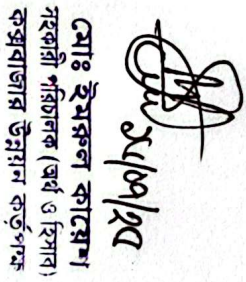 মোঃ ইমরুল কায়েস
সহকারী পরিচালক (অর্থ ও হিসাব)
কক্সবাজার উন্নয়ন কর্তৃপক্ষ